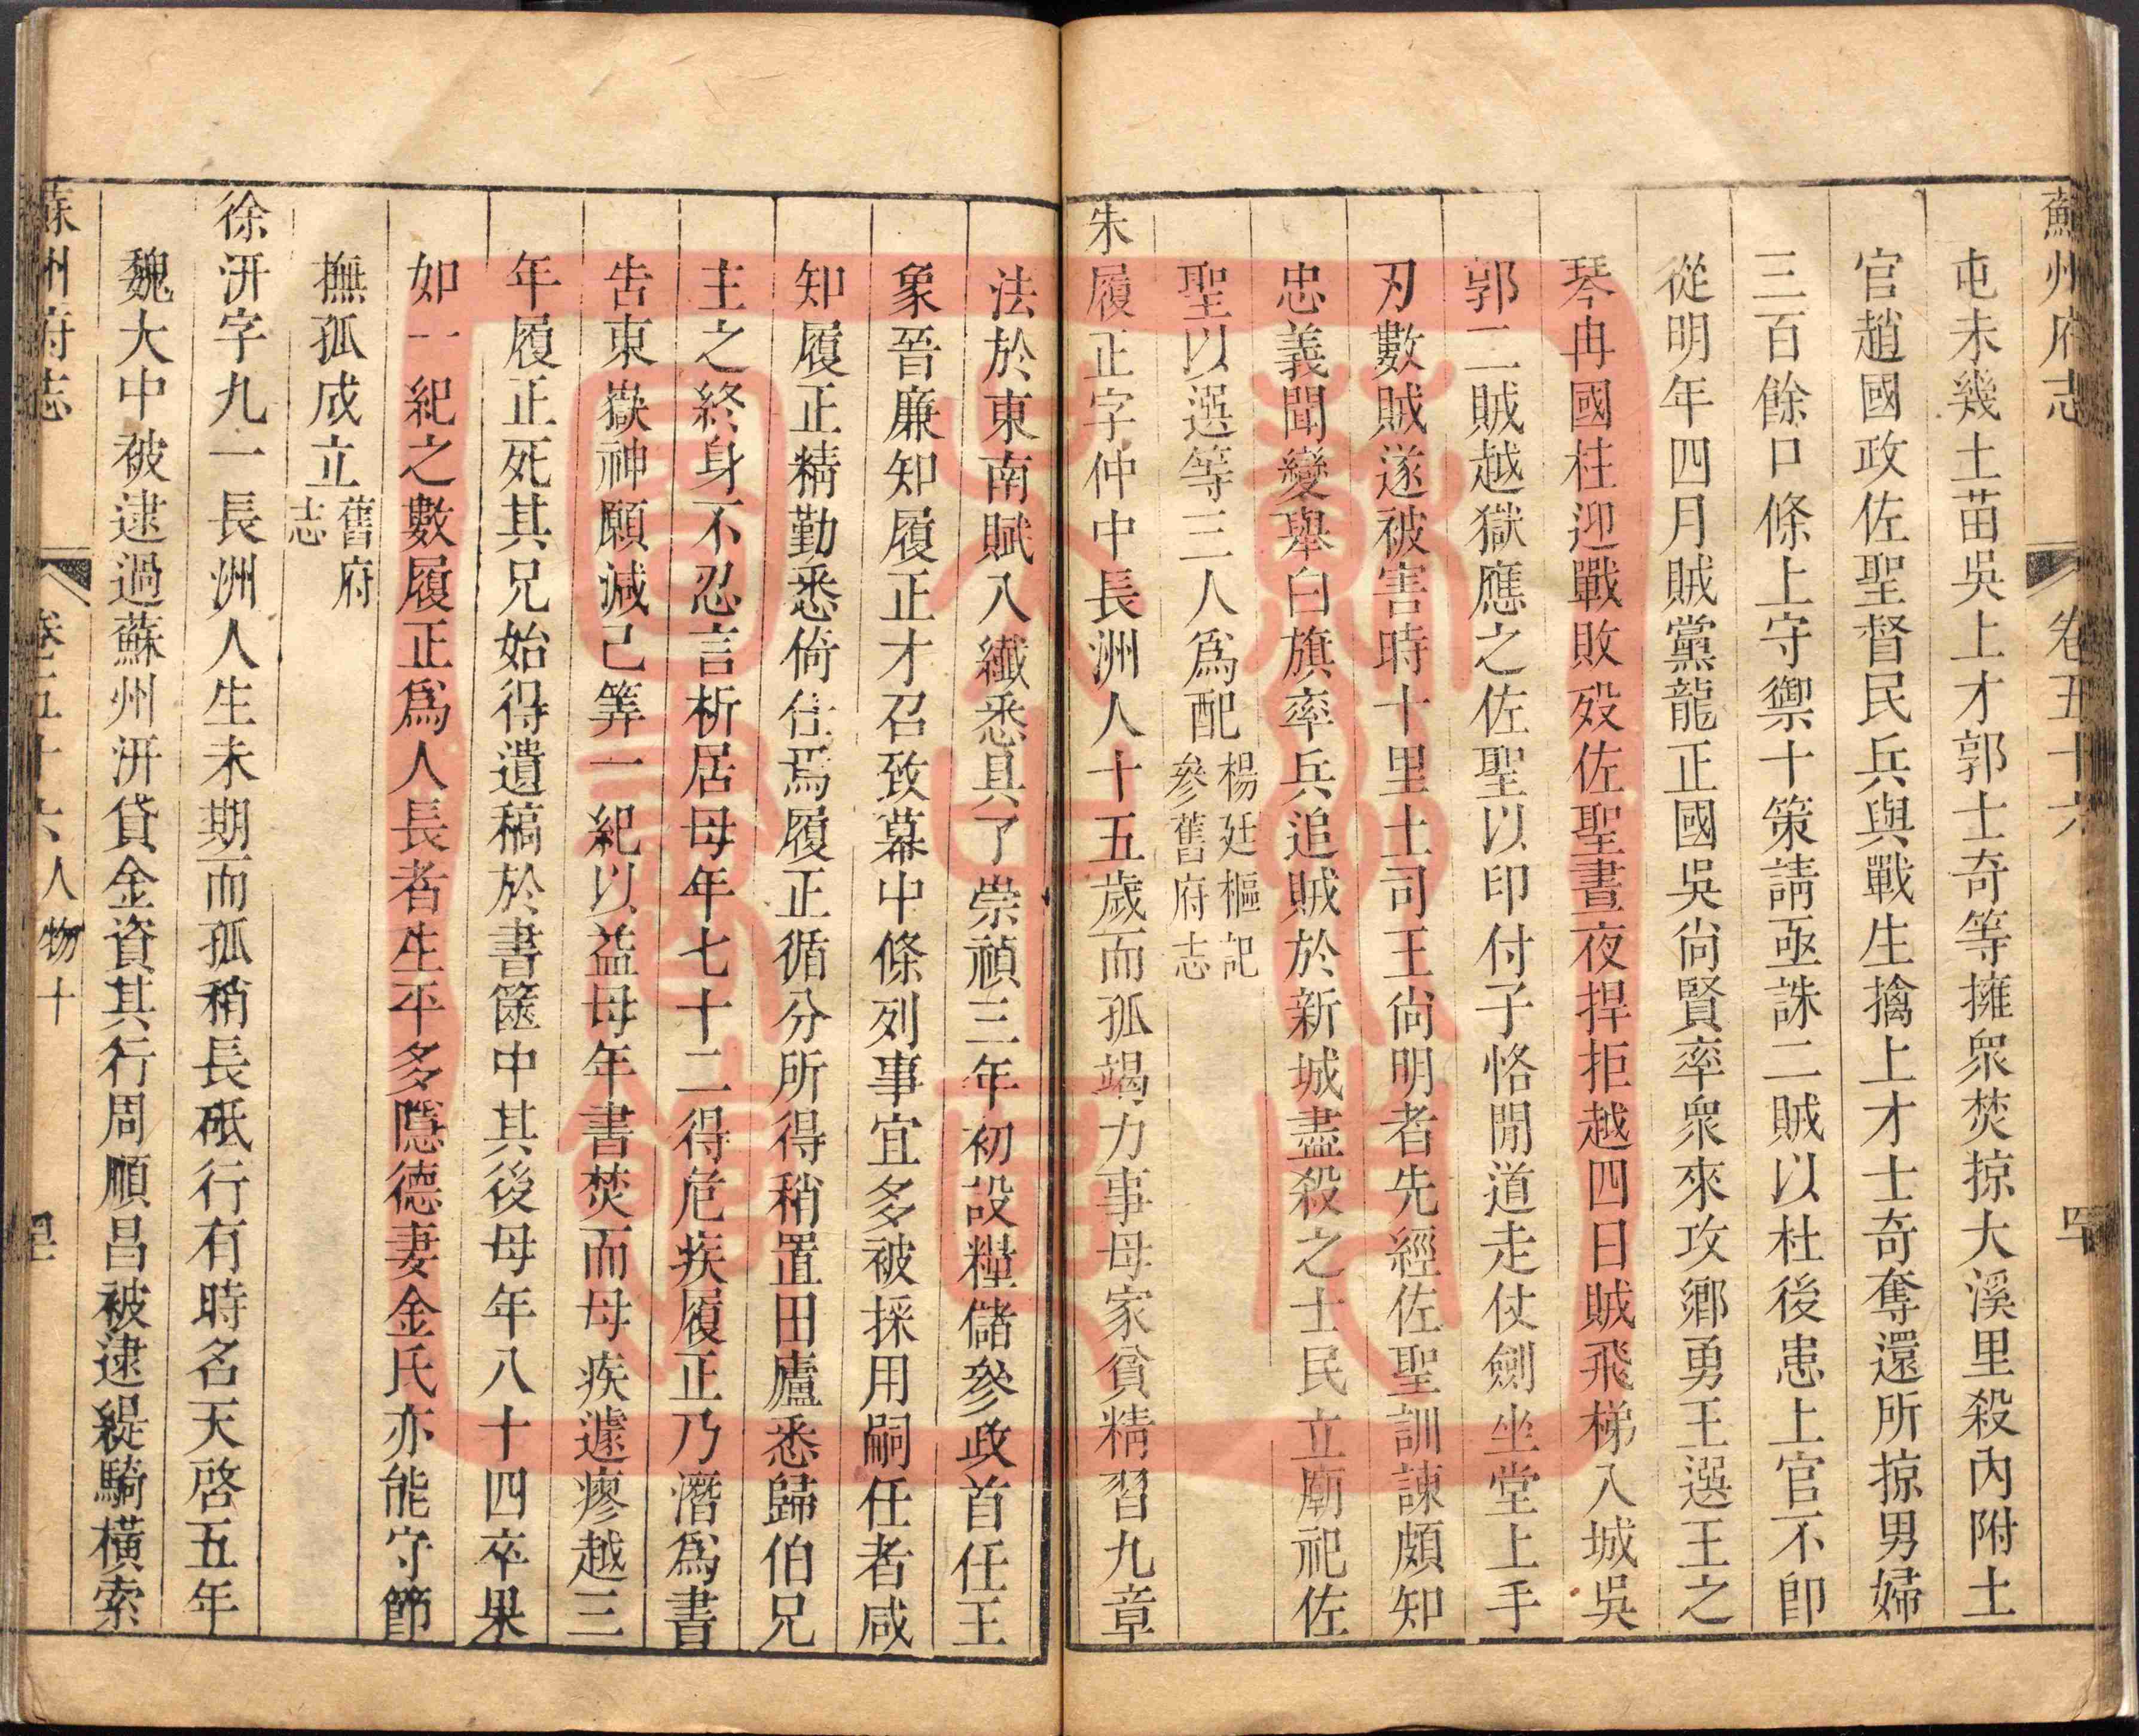 蘇州府志
卷五十六
屯未幾土苗吳上才郭士奇等擁眾焚掠大溪里殺內附土
官趙國政佐聖督民兵與戰生擒上才士奇奪還所掠男婦
三百餘口條上守禦十策請亟誅二賊以杜後患上官不卽
從明年四月賊黨龍正國吳尙賢率眾來攻鄉勇王選王之
琴冉國柱迎戰敗歿佐聖晝夜捍拒越四日賊飛梯入城吳
郭二賊越獄應之佐聖以印付子恪閒道走仗劍坐堂上手
刃數賊遂被害時十里土司王尙明者先經佐聖訓諫頗知
忠義聞變舉白旗率兵追賊於新城盡殺之士民立廟祀佐
聖以選等三人爲配楊廷樞記
參舊府志
朱履正字仲中長洲人十五歲而孤竭力事母家貧精習九章
法於東南賦入纖悉具了崇禎三年初設糧儲參政首任王
象晉廉知履正才召致幕中條列事宜多被採用嗣任者咸
知履正精勤悉倚仕焉履正循分所得稍置田廬悉歸伯兄
主之終身不忍言析居母年七十二得危疾履正乃潛爲書
告東嶽神願減己筭一紀以益母年書焚而母疾遽瘳越三
年履正死其兄始得遺稿於書篋中其後母年八十四卒果
如一紀之數履正爲人長者生平多隱德妻金氏亦能守節
撫孤成立舊府
志
徐汧字九一長洲人生未期而孤稍長砥行有時名天啓五年
魏大中被逮過蘇州汧貸金資其行周順昌被逮緹騎橫索
蘇州府志
卷五十六
人物十